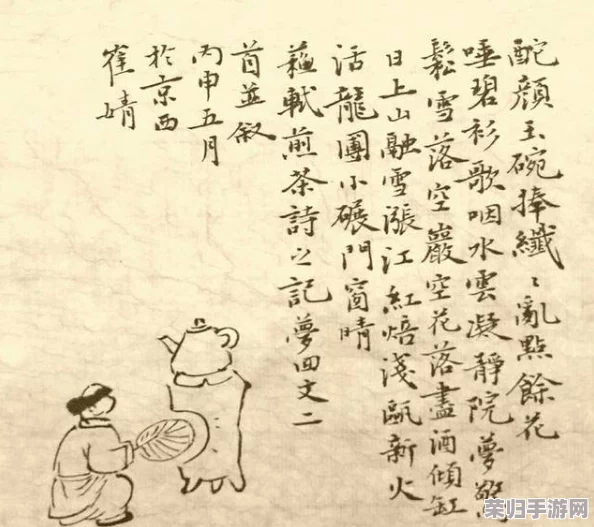 酡顏玉碗捧纖〻亂點餘花
唾碧衫歌咽水雲凝靜院夢驚
鬆雪落空巖空花落盡酒傾缸
日上山融雪漲江紅焙淺甌新火
活龍團小碾門窗晴
蘓軾煎茶詩之記夢囬文二
首並叙
丙申五月
於京西
崔婧
荣归手游网